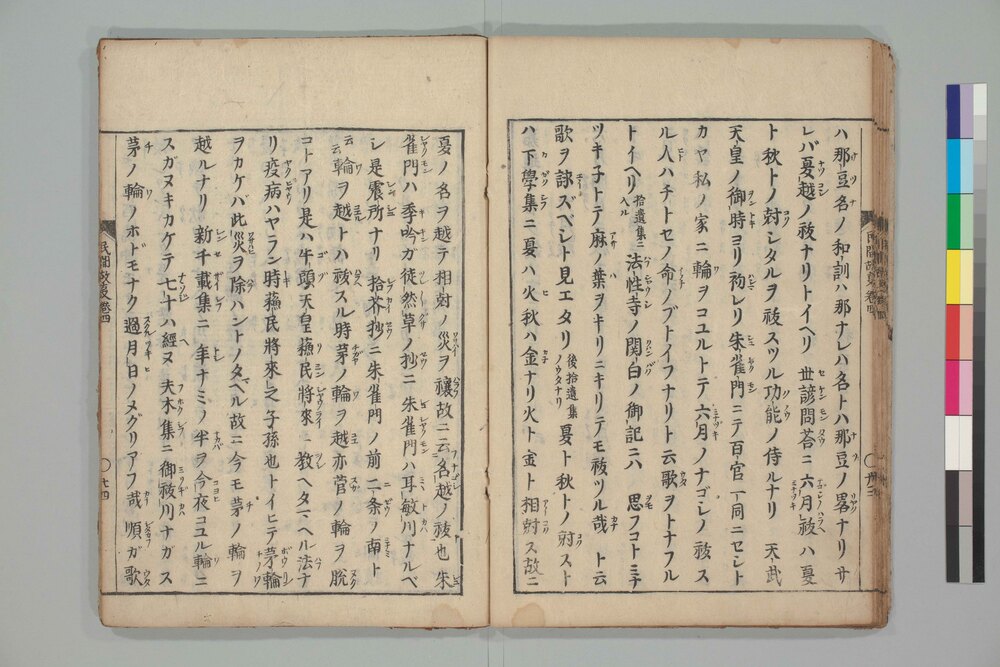 ハ那豆名ノ和訓ハ那ナレハ名トハ那豆ノ畧ナリサ
レバ夏越ノ祓ナリトイヘリ 世諺問荅ニ六月祓ハ夏
ト秋トノ尅シタルヲ祓スツル功能ノ侍ルナリ 天武
天皇ノ御時ヨリ初レリ朱雀門ニテ百官一同ニセシト
カヤ私ノ家ニ輪ヲコユルトテ六月ノナゴシノ祓ス
ル人ハチトセノ命ノブトイフナリト云歌ヲトナフル
トイヘリ 拾遺集ニ入ル 法性寺ノ関白ノ御記ニハ 思フコトミナ
ツキ子トテ麻ノ葉ヲキリニキリテモ祓ツル哉 ト云
歌ヲ詠ズベシト見エタリ 後拾遺集ノウタナリ 夏ト秋トノ尅スト
ハ下學集ニ夏ハ火秋ハ金ナリ火ト金ト相尅ス故ニ
夏ノ名ヲ越テ相尅ノ災ヲ禳故ニ云名越ノ祓也 朱
雀門ハ季吟カ徒然草ノ抄ニ朱雀門ハ耳敏川ナルベ
シ是震所ナリ 拾芥抄ニ朱雀門ノ前二条ノ南ト
云輪ヲ越トハ祓スル時茅ノ輪ヲ越亦菅ノ輪ヲ脱
コトアリ是ハ牛頭天皇蘓民將來ニ教ヘタマヘル法ナ
リ疫病ハヤラン時蘓民將來之子孫也トイヒテ茅輪
ヲカケバ此災ヲ除ハントノタマヘル故ニ今モ茅ノ輪ヲ
越ルナリ 新千載集ニ 年ナミノ半ヲ今夜コユル輪ニ
スガヌキカケテ七十ハ經ヌ 夫木集ニ御祓川ナガス
茅ノ輪ノホドモナク過月日ノメグリアフ哉 順ガ歌
民間故叓卷四
〇廿四